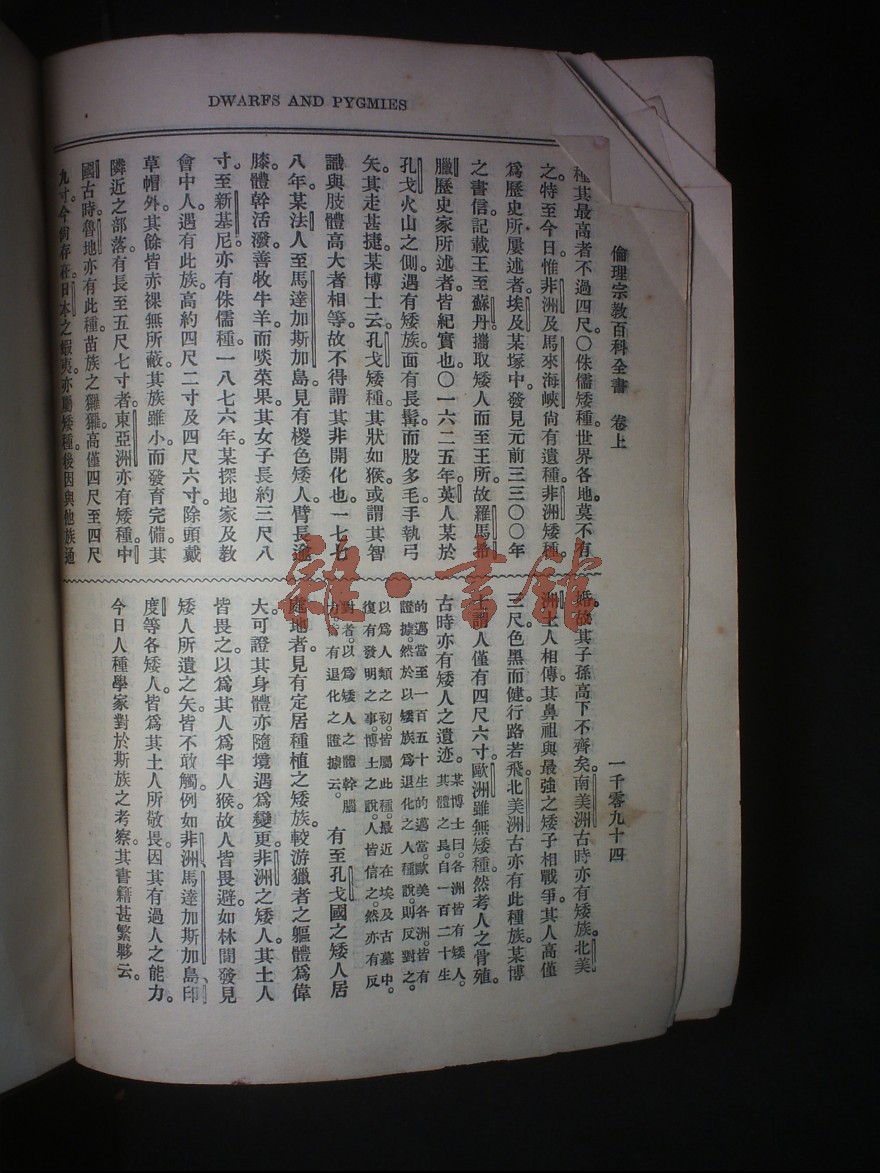 DWARFS AND PYGMIES
倫理宗教百科全書 卷上
一千零九十四
種其最高者不過四尺。〇侏儒矮種。世界各地。莫不有
之。特至今日。惟非洲及馬來海峽。尙有遺種。非洲矮種。
爲歷史所屢述者。埃及某塚中。發見元前三三〇〇年
之書信。記載王至蘇丹。攜取矮人而至王所。故羅馬希
臘歷史家所述者。皆紀實也。〇一六二五年。英人某於
孔戈火山之側。遇有矮族。面有長髯。而股多毛。手執弓
矢。其走甚捷。某博士云。孔戈矮種。其狀如猴。或謂其智
識與肢體高大者相等。故不得謂其非開化也。一七七
八年。某法人至馬達加斯加島。見有椶色矮人。臂長逾
膝。體幹活潑。善牧牛羊。而啖菜果。其女子長約三尺八
寸。至新基尼。亦有侏儒種。一八七六年。某探地家及教
會中人。遇有此族。高約四尺二寸及四尺六寸。除頭戴
草帽外。其餘皆亦裸無所蔽。其族雖小。而發育完備。其
隣近之部落。有長至五尺七寸者。東亞洲亦有矮種。中
國古時魯地亦有此種。苗族之玀玀。高僅四尺至四尺
九寸。今尙存在。日本之蝦夷。亦屬矮種。後因與他族通
婚。故其子孫高下不齊矣。南美洲古時亦有矮族。北美
洲土人相傳。其鼻祖與最強之矮子相戰爭。其人高僅
三尺。色黑而健。行路若飛。北美洲古亦有此種族。某博
士謂人僅有四尺六寸。歐洲雖無矮種。然考人之骨殖。
古時亦有矮人之遺迹。某博士曰。各洲皆有矮人。
其體之長。自一百二十生
的邁當至一百五十生的邁當。歐美各洲。皆有
證據。然於以矮族爲退化之人種說。則反對之。
以爲人類之初。皆屬此種。最近在埃及古墓中。
復有發明之事。博士之說。人皆信之。然亦有反
對者。以爲矮人之體幹腦
有退化之證據云。有至孔戈國之矮人居
庭地者。見有定居種植之矮族。較游獵者之軀體爲偉
大。可證其身體亦隨境遇爲變更。非洲之矮人。其土人
皆畏之。以爲其人爲半人猴。故人皆畏避。如林間發見
矮人所遺之矢。皆不敢觸。例如非洲、馬達加斯加島、印
度等各矮人。皆爲其土人所敬畏。因其有過人之能力。
今日人種學家對於斯族之考察。其書籍甚繁夥云。
雜·書館